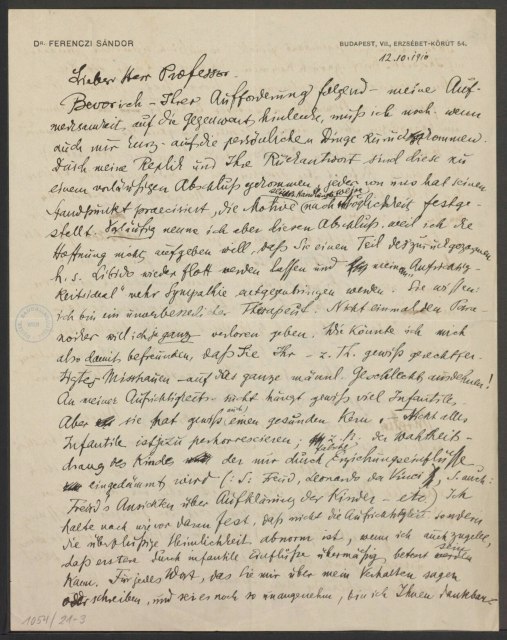 Dr. FERENCZI SÁNDOR
BUDAPEST, VII., ERZSÉBET-KÖRÚT 54.
12.10.1910
Lieber Herr Professor.
Bevor ich – Ihrer Aufforderung folgend – meine Auf-
merksamkeit auf die Gegenwart hinlenke, muß ich noch – wenn
auch nur kurz – auf die persönlichen Dinge zurückkommen.
Durch meine Replik und Ihre Rückantwort sind diese zu
einem vorläufigen Abschluß gekommen, jeder von uns hat seinen
Standpunkt praecisirt, die Motive nach Möglichkeit festge-
stellt. Vorläufig nenne ich aber diesen Abschluß, weil ich die
Hoffnung nicht aufgeben will, daß Sie einen Teil der zurückgezogenen
h.s. Libido wieder flott werden lassen und meinem "Aufrichtig-
keitsideal" mehr Sympathie entgegenbringen werden. Sie wissen:
ich bin ein Therapeut. Nicht einmal den Para-
noiker will ich ja ganz verloren geben. Wie könnte ich mich
also damit befreunden, daß Sie Ihr – z. Th. gewiß gerechtfer-
tigtes Misstrauen – auf das ganze männl. Geschlecht ausdehnen!
An meiner Aufrichtigkeits- sucht hängt gewiß viel Infantiles,
Aber sie hat gewiß auch einen gesunden Kern – Nicht alles
Infantile ist ja zu perhorrescieren; z.B. der Wahrheits-
drang des Kindes der nur durch falsche Erziehungseinflüsse
eingedämmt wird (: S. Freud, Leonardo da Vinci, S. auch:
Freud's Ansichten über Aufklärung der Kinder – etc) Ich
halte nach wie vor daran fest, daß nicht die Aufrichtigkeit sondern
die überflüssige Heimlichkeit abnorm ist, wenn ich auch zugebe,
daß erstere durch infantile Einflüße übermäßig betont sein
kann. Für jedes Wort, das Sie mir über mein Verhalten sagen
oder schreiben, und sei es noch so unangenehm, bin ich Ihnen dankbar-
1054/21-3